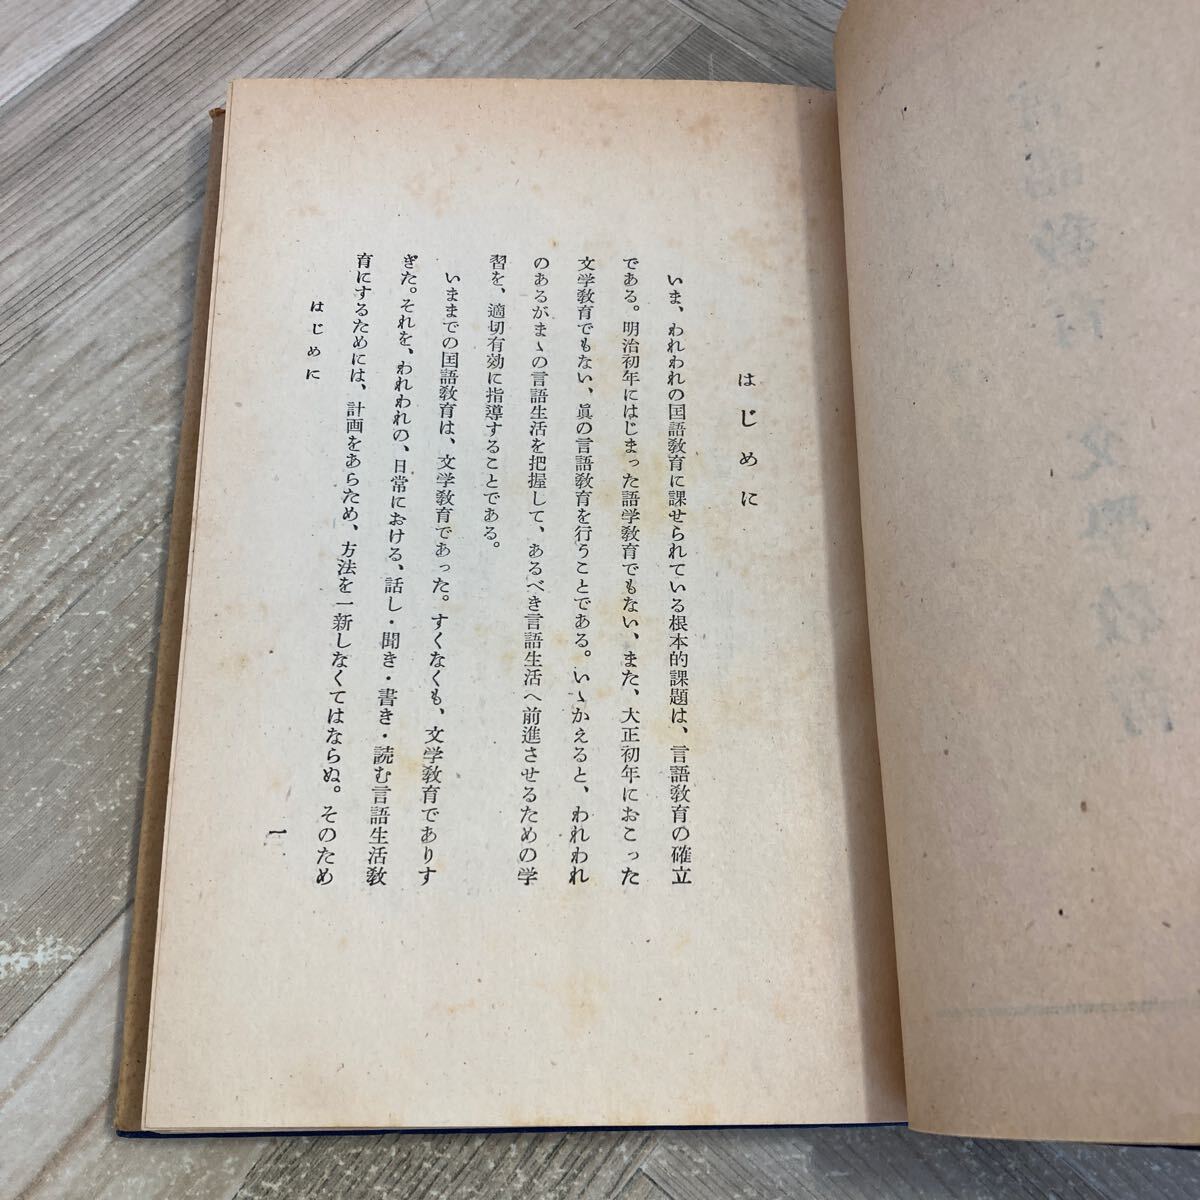 はじめに
いま、われわれの国語敎育に課せられている根本的課題は、言語敎育の確立
である。明治初年にはじまった語学敎育でもない、また、大正初年におこった
文学敎育でもない、眞の言語敎育を行うことである。いゝかえると、われわれ
のあるがまゝの言語生活を把握して、あるべき言語生活へ前進させるための学
習を、適切有効に指導することである。
いままでの国語敎育は、文学敎育であった。すくなくも、文学敎育でありす
ぎた。それを、われわれの、日常における、話し・聞き・書き・読む言語生活敎
育にするためには、計画をあらため、方法を一新しなくてはならぬ。そのため
はじめに
一